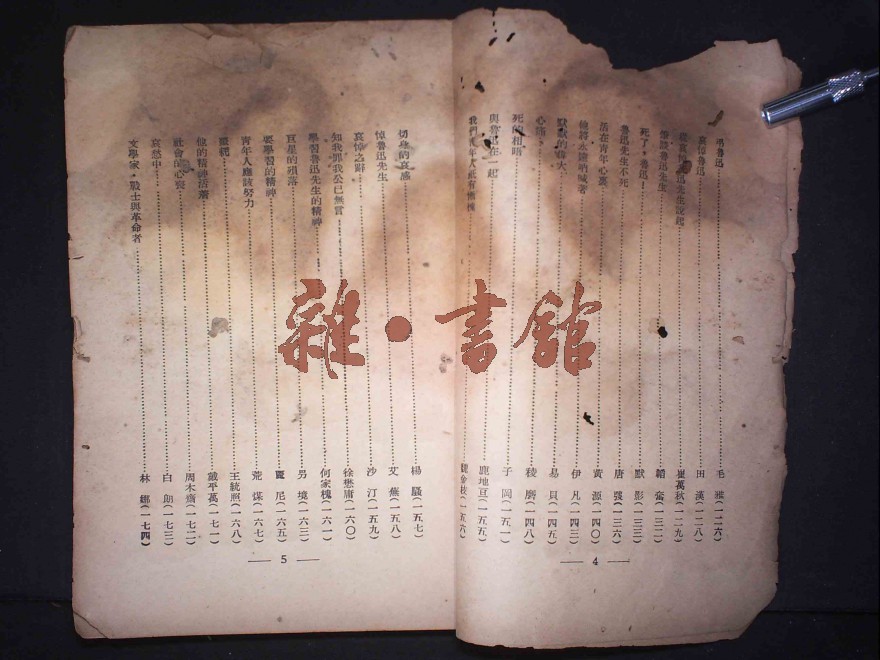 魯迅……毛　雅(一二六)
哀悼魯迅……田　漢(一二八)
哀悼魯迅先生說起……崔萬秋(一二九)
魯迅先生……韜　奮(一三二)
死了，魯迅！……默　影(一三三)
魯迅先生不死……唐　弢(一三六)
活在青年心裏……黃　源(一四〇)
永遠吶喊著……伊　凡(一四三)
默默的偉大……易　貝(一四五)
心痛……稜　磨(一四八)
死的相晤……子　岡(一五一)
與魯迅在一起……鹿地亘(一五五)
我們青年人祇有……金枝(一五六)
— 4 —
切身的哀感……楊　騷(一五七)
悼魯迅先生……艾　蕪(一五八)
哀悼之辭……沙　汀(一五九)
知我罪我公已無言……徐懋庸(一六〇)
學習魯迅先生的精神……何家槐(一六一)
巨星的殞落……另　境(一六三)
要學習的精神……麗　尼(一六五)
青年人應該努力……荒　煤(一六七)
王統照(一六八)
他的精神活着……戴平萬(一七一)
社會的心喪……周木齋(一七二)
哀愁中……白　朗(一七三)
文學家，戰士與革命者……林　娜(一七四)
— 5 —
雜·書館